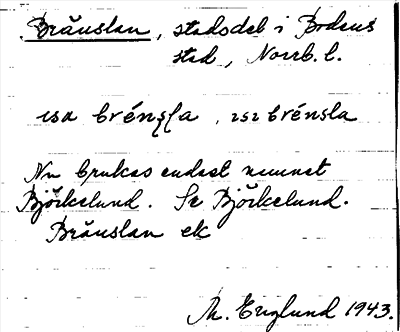 Bränslan, stadsdel i Bodens
stad, Norrb. l.
Nu brukas endast namnet
Björkelund. Se Björkelund.
Bränslan ek
Th. Englund 1943.